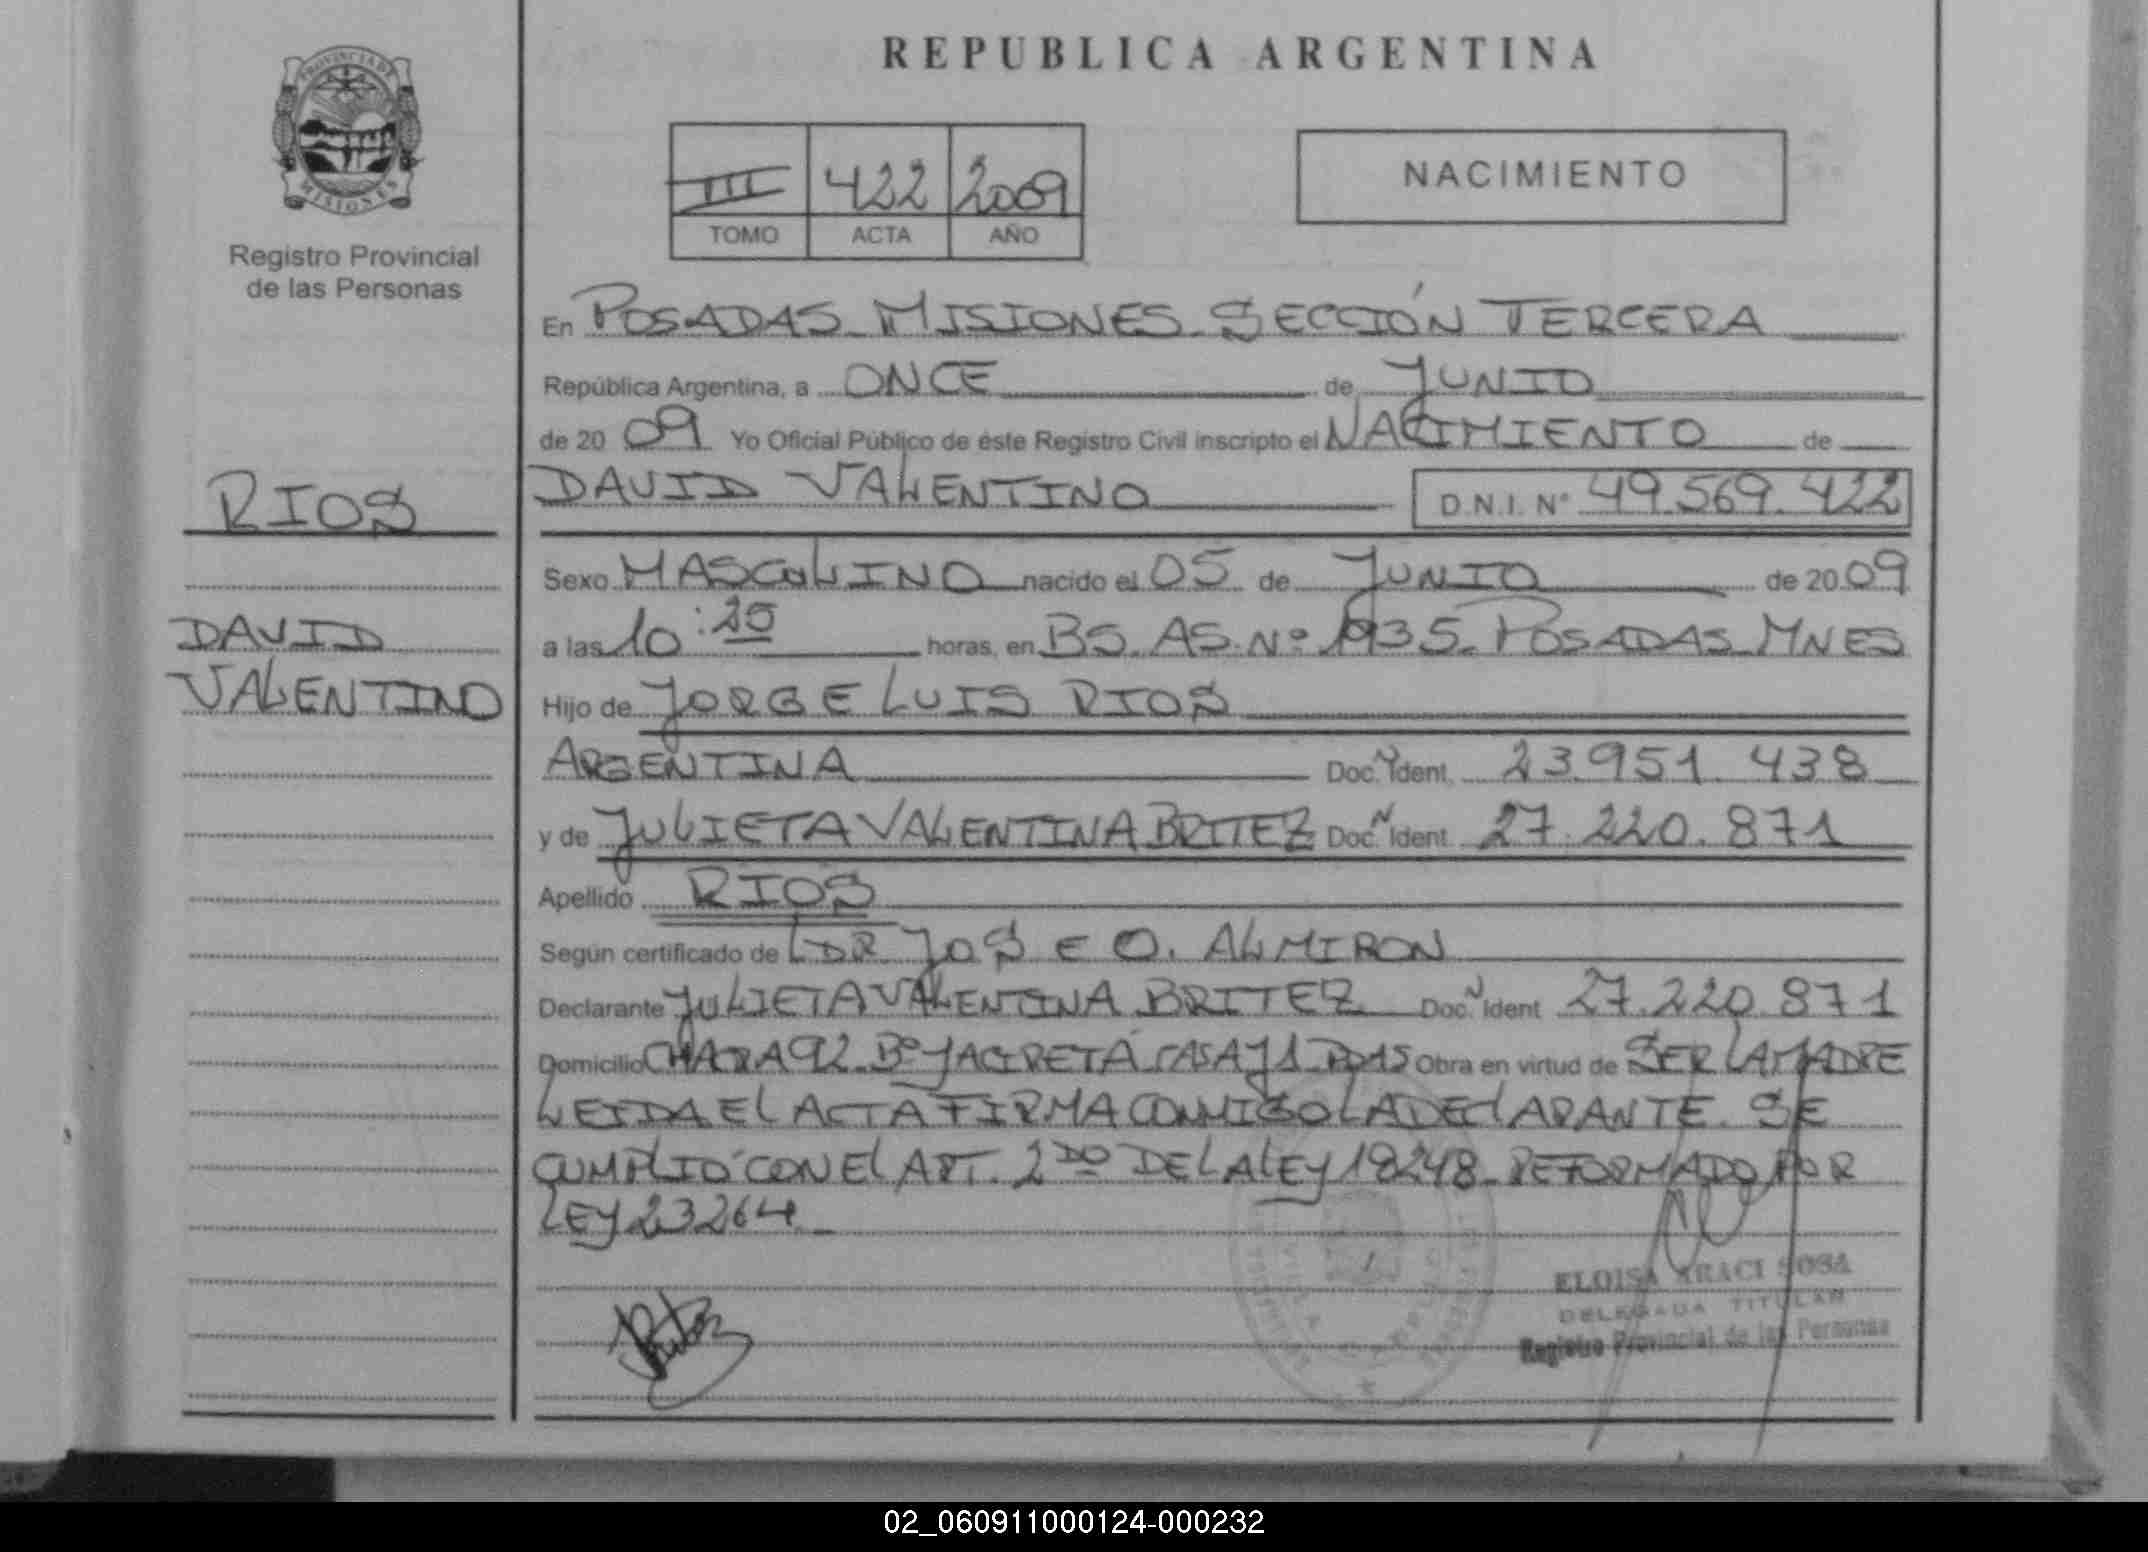 REPUBLICA ARGENTINA
PROVINCIA DE
MISIONES
III 422 2009
TOMO ACTA AÑO
NACIMIENTO
Registro Provincial
de las Personas
En POSADAS MISIONES SECCIÓN TERCERA
República Argentina, a ONCE de JUNIO
de 20 09 Yo Oficial Público de éste Registro Civil inscripto el NACIMIENTO de
RIOS
DAVID VALENTINO D.N.I. Nº 49.569.422
Sexo MASCULINO nacido el 05 de JUNIO de 20 09
DAVID
VALENTINO
a las 10:25 horas, en BS. AS. Nº 1935. POSADAS MNES
Hijo de JORGE LUIS RIOS
ARGENTINA Doc. N Ident. 23.951.438
y de JULIETA VALENTINA BRITEZ Doc. N Ident. 27.220.871
Apellido RIOS
Según certificado de DR. JOSE O. ALMIRON
Declarante JULIETA VALENTINA BRITEZ Doc. N Ident 27.220.871
Domicilio CHACRA 92. Bº YACIRETÁ CASA 71 PDAS Obra en virtud de SER LA MADRE
LEIDA EL ACTA FIRMA CONMIGO LA DECLARANTE. SE
CUMPLIÓ CON EL ART. 2DO DE LA LEY 18248 REFORMADO POR
LEY 23264.
ELOISA ARACI SOSA
DELEGADA TITULAR
Registro Provincial de las Personas
02_060911000124-000232